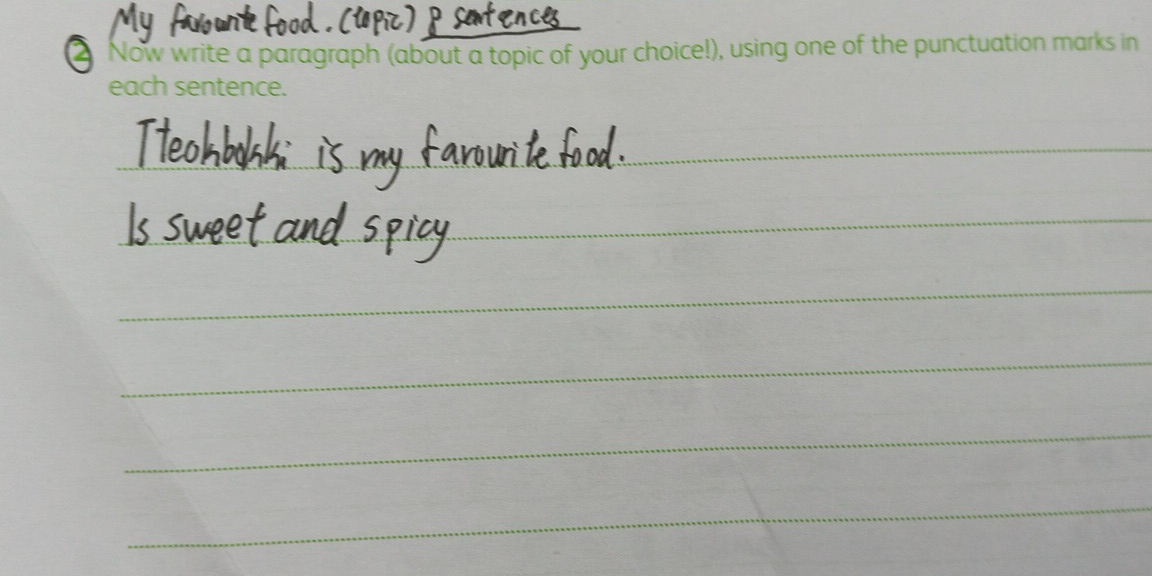 My favourite food. (topic) 8 sentences
2 Now write a paragraph (about a topic of your choice!), using one of the punctuation marks in
each sentence.
is my favourite food.
Is sweet and spicy